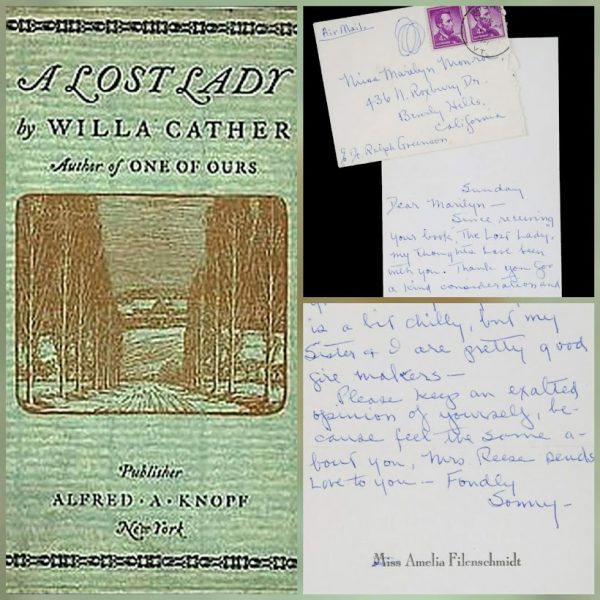 A LOST LADY
by WILLA CATHER
Author of ONE OF OURS
Publisher
ALFRED · A · KNOPF
New York
Air Mail
Miss Marilyn Monroe
436 N. Roxbury Dr.
Beverly Hills.
California
% Dr. Ralph Greenson
Sunday
Dear Marilyn —
Since receiving
your book, The Lost Lady,
my thoughts have been
with you. Thank you for
a kind consideration and
is a bit chilly, but my
Sister & I are pretty good
fire makers —
Please keep an exalted
opinion of yourself, be-
cause feel the same a-
bout you, Mrs. Reese sends
Love to you — Fondly
Sonny —
Miss Amelia Filenschmidt